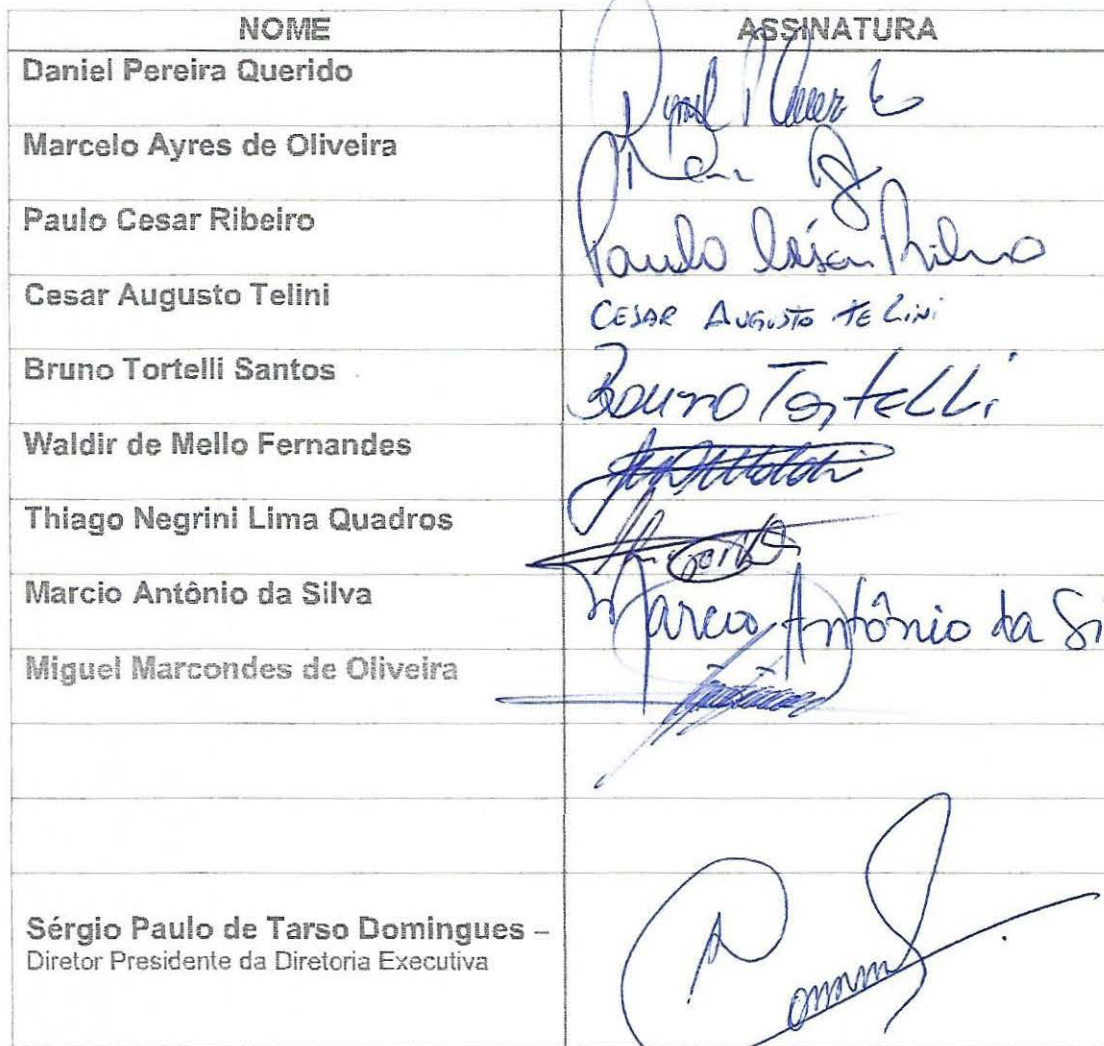 NOME ASSINATURA
Daniel Pereira Querido
Marcelo Ayres de Oliveira
Paulo Cesar Ribeiro Paulo César Ribeiro
Cesar Augusto Telini CESAR AUGUSTO TELINI
Bruno Tortelli Santos Bruno Tortelli
Waldir de Mello Fernandes
Thiago Negrini Lima Quadros
Marcio Antônio da Silva Marcio Antônio da Si
Miguel Marcondes de Oliveira
Sérgio Paulo de Tarso Domingues –
Diretor Presidente da Diretoria Executiva